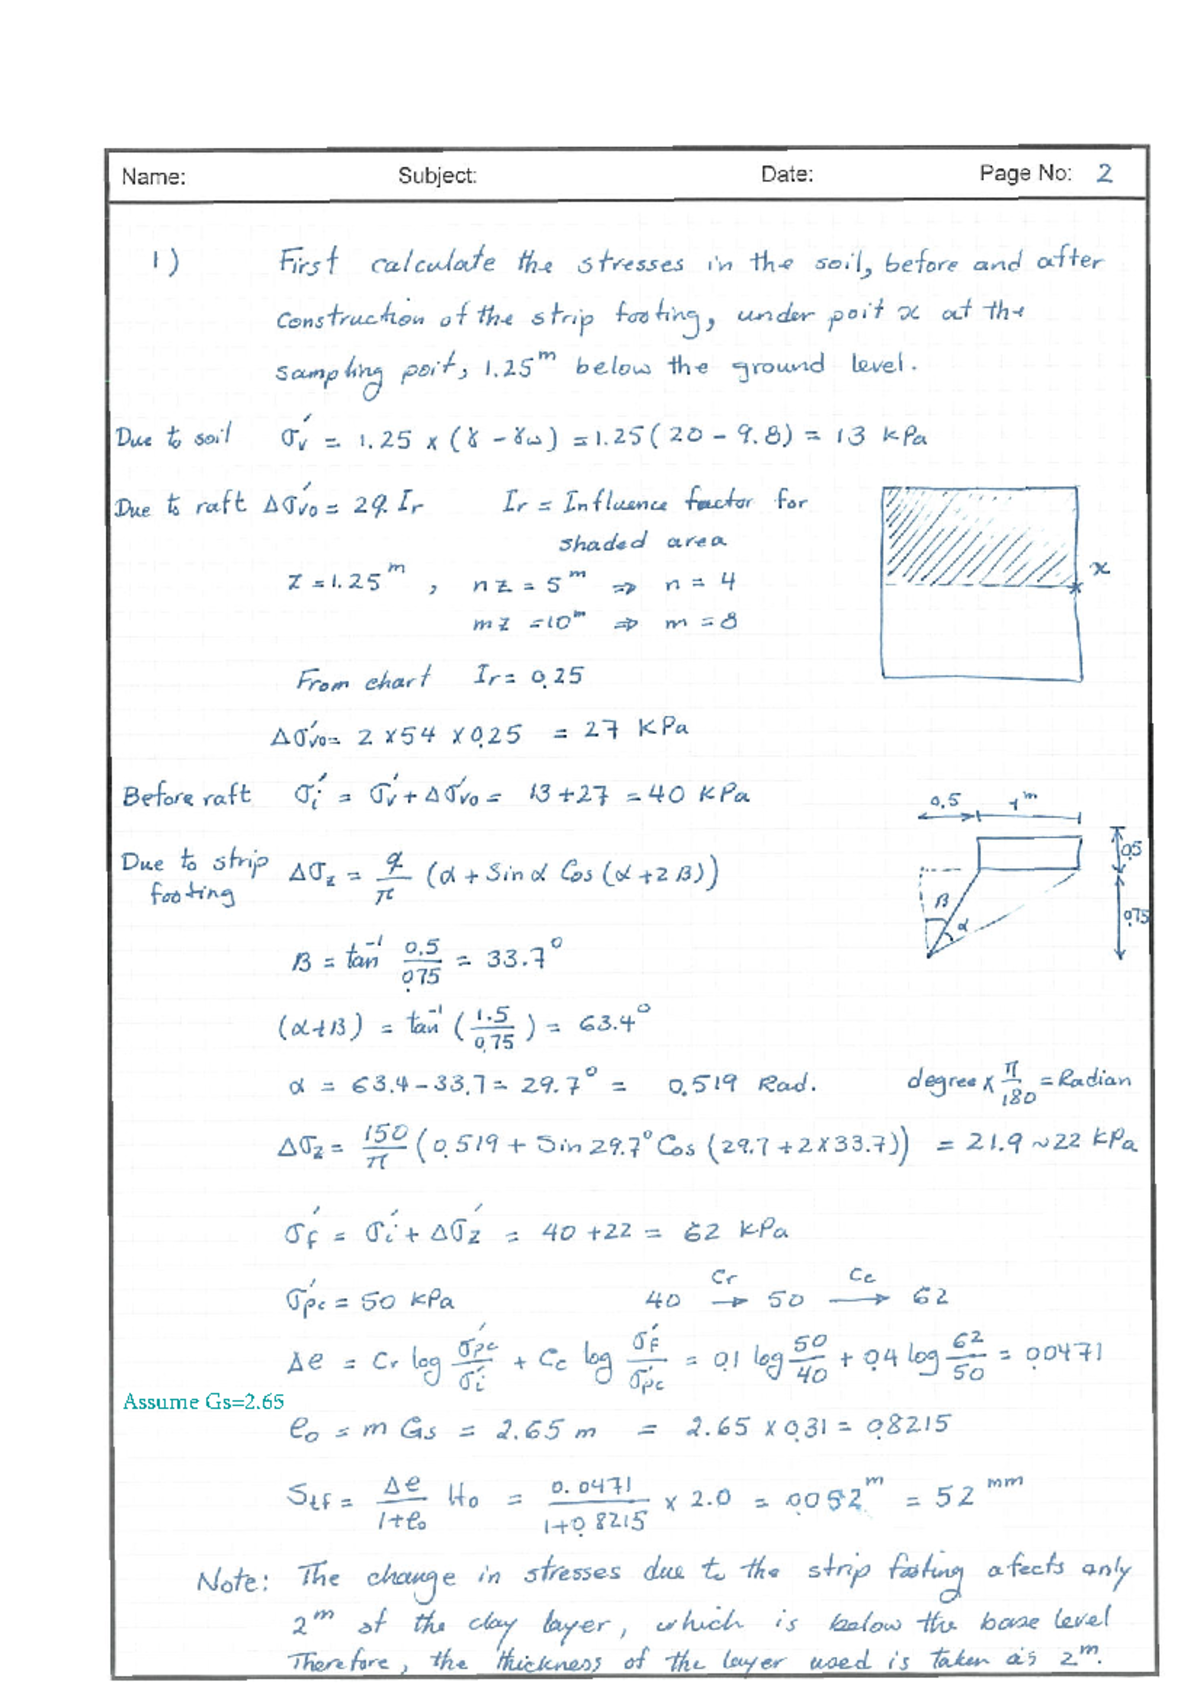 Name: Subject: Date: Page No: 2
1) First calculate the stresses in the soil, before and after
construction of the strip footing, under poit x at the
sampling poit, 1.25ᵐ below the ground level.
Due to soil σv' = 1.25 x (γ - γω) = 1.25(20 - 9.8) = 13 kPa
Due to raft Δσvo' = 2q. Ir Ir = Influence factor for
shaded area
z = 1.25ᵐ , nz = 5ᵐ ⇒ n = 4
x
mz = 10ᵐ ⇒ m = 8
From chart Ir = 0.25
Δσvo' = 2 x 54 x 0.25 = 27 KPa
Before raft σi' = σv' + Δσvo' = 13 + 27 = 40 KPa
0.5 1ᵐ
Due to strip Δσz = q/π (α + Sin α Cos (α + 2β))
footing
0.5
β α 0.75
β = tan⁻¹ 0.5/0.75 = 33.7°
(α+β) = tan⁻¹ (1.5/0.75) = 63.4°
α = 63.4 - 33.7 = 29.7° = 0.519 Rad. degree x π/180 = Radian
Δσz = 150/π (0.519 + Sin 29.7° Cos (29.7 + 2x33.7)) = 21.9 ~ 22 kPa
σf' = σi' + Δσz' = 40 + 22 = 62 kPa
σpc' = 50 kPa 40 Cr→ 50 Cc→ 62
Δe = Cr log σpc'/σi' + Cc log σf'/σpc' = 0.1 log 50/40 + 0.4 log 62/50 = 0.0471
Assume Gs=2.65
eo = m Gs = 2.65 m = 2.65 x 0.31 = 0.8215
Stf = Δe/1+eo Ho = 0.0471/1+0.8215 x 2.0 = 0.052ᵐ = 52 ᵐᵐ
Note: The change in stresses due to the strip footing afects only
2ᵐ of the clay layer, which is below the base level
Therefore, the thickness of the layer used is taken as 2ᵐ.